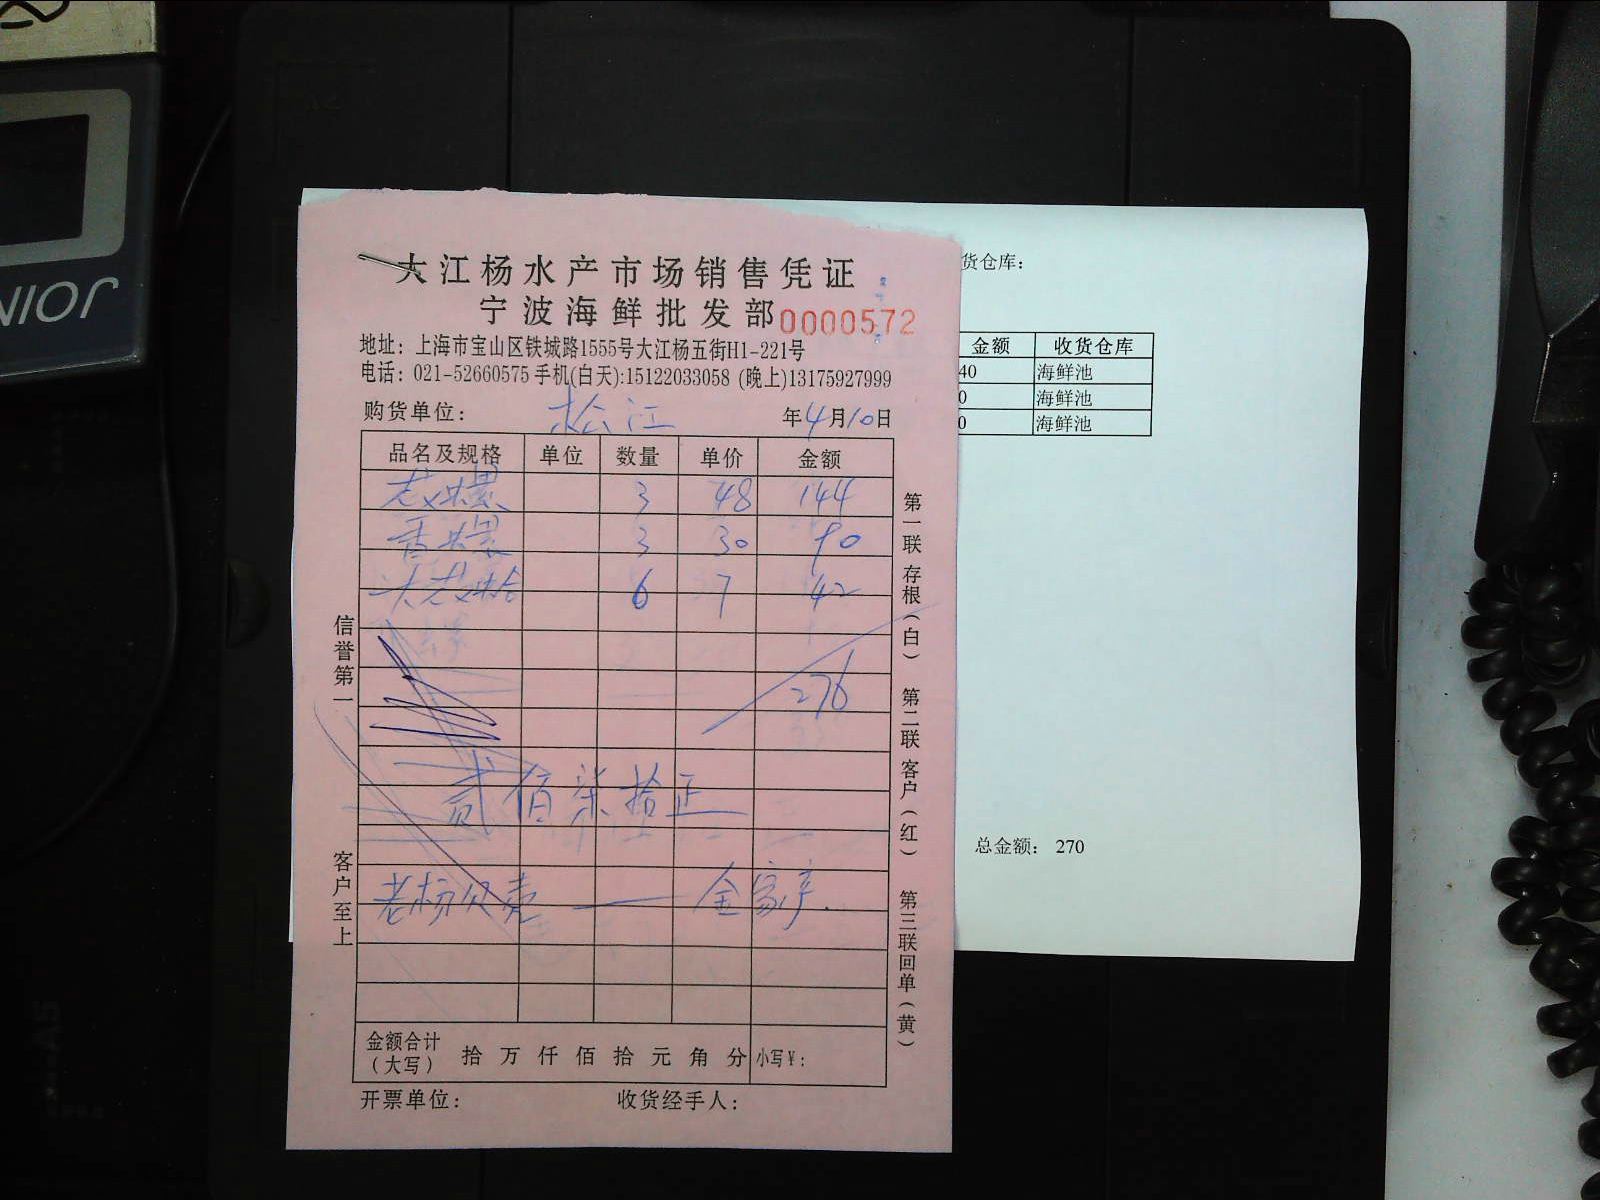 大江杨水产市场销售凭证
宁波海鲜批发部 0000572
地址：上海市宝山区铁城路1555号大江杨五街H1-221号
电话：021-52660575 手机(白天):15122033058 (晚上)13175927999
购货单位： 松江 年4月10日
品名及规格 单位 数量 单价 金额
花螺 3 48 144
香螺 3 30 90
大花蛤 6 7 42
276
贰佰柒拾正
老杨贝壳 — 金家产
金额合计（大写） 拾 万 仟 佰 拾 元 角 分 小写￥:
开票单位： 收货经手人：
信誉第一
客户至上
第一联 存根（白） 第二联 客户（红） 第三联 回单（黄）
货仓库：
金额 收货仓库
40 海鲜池
0 海鲜池
0 海鲜池
总金额： 270
JOIN